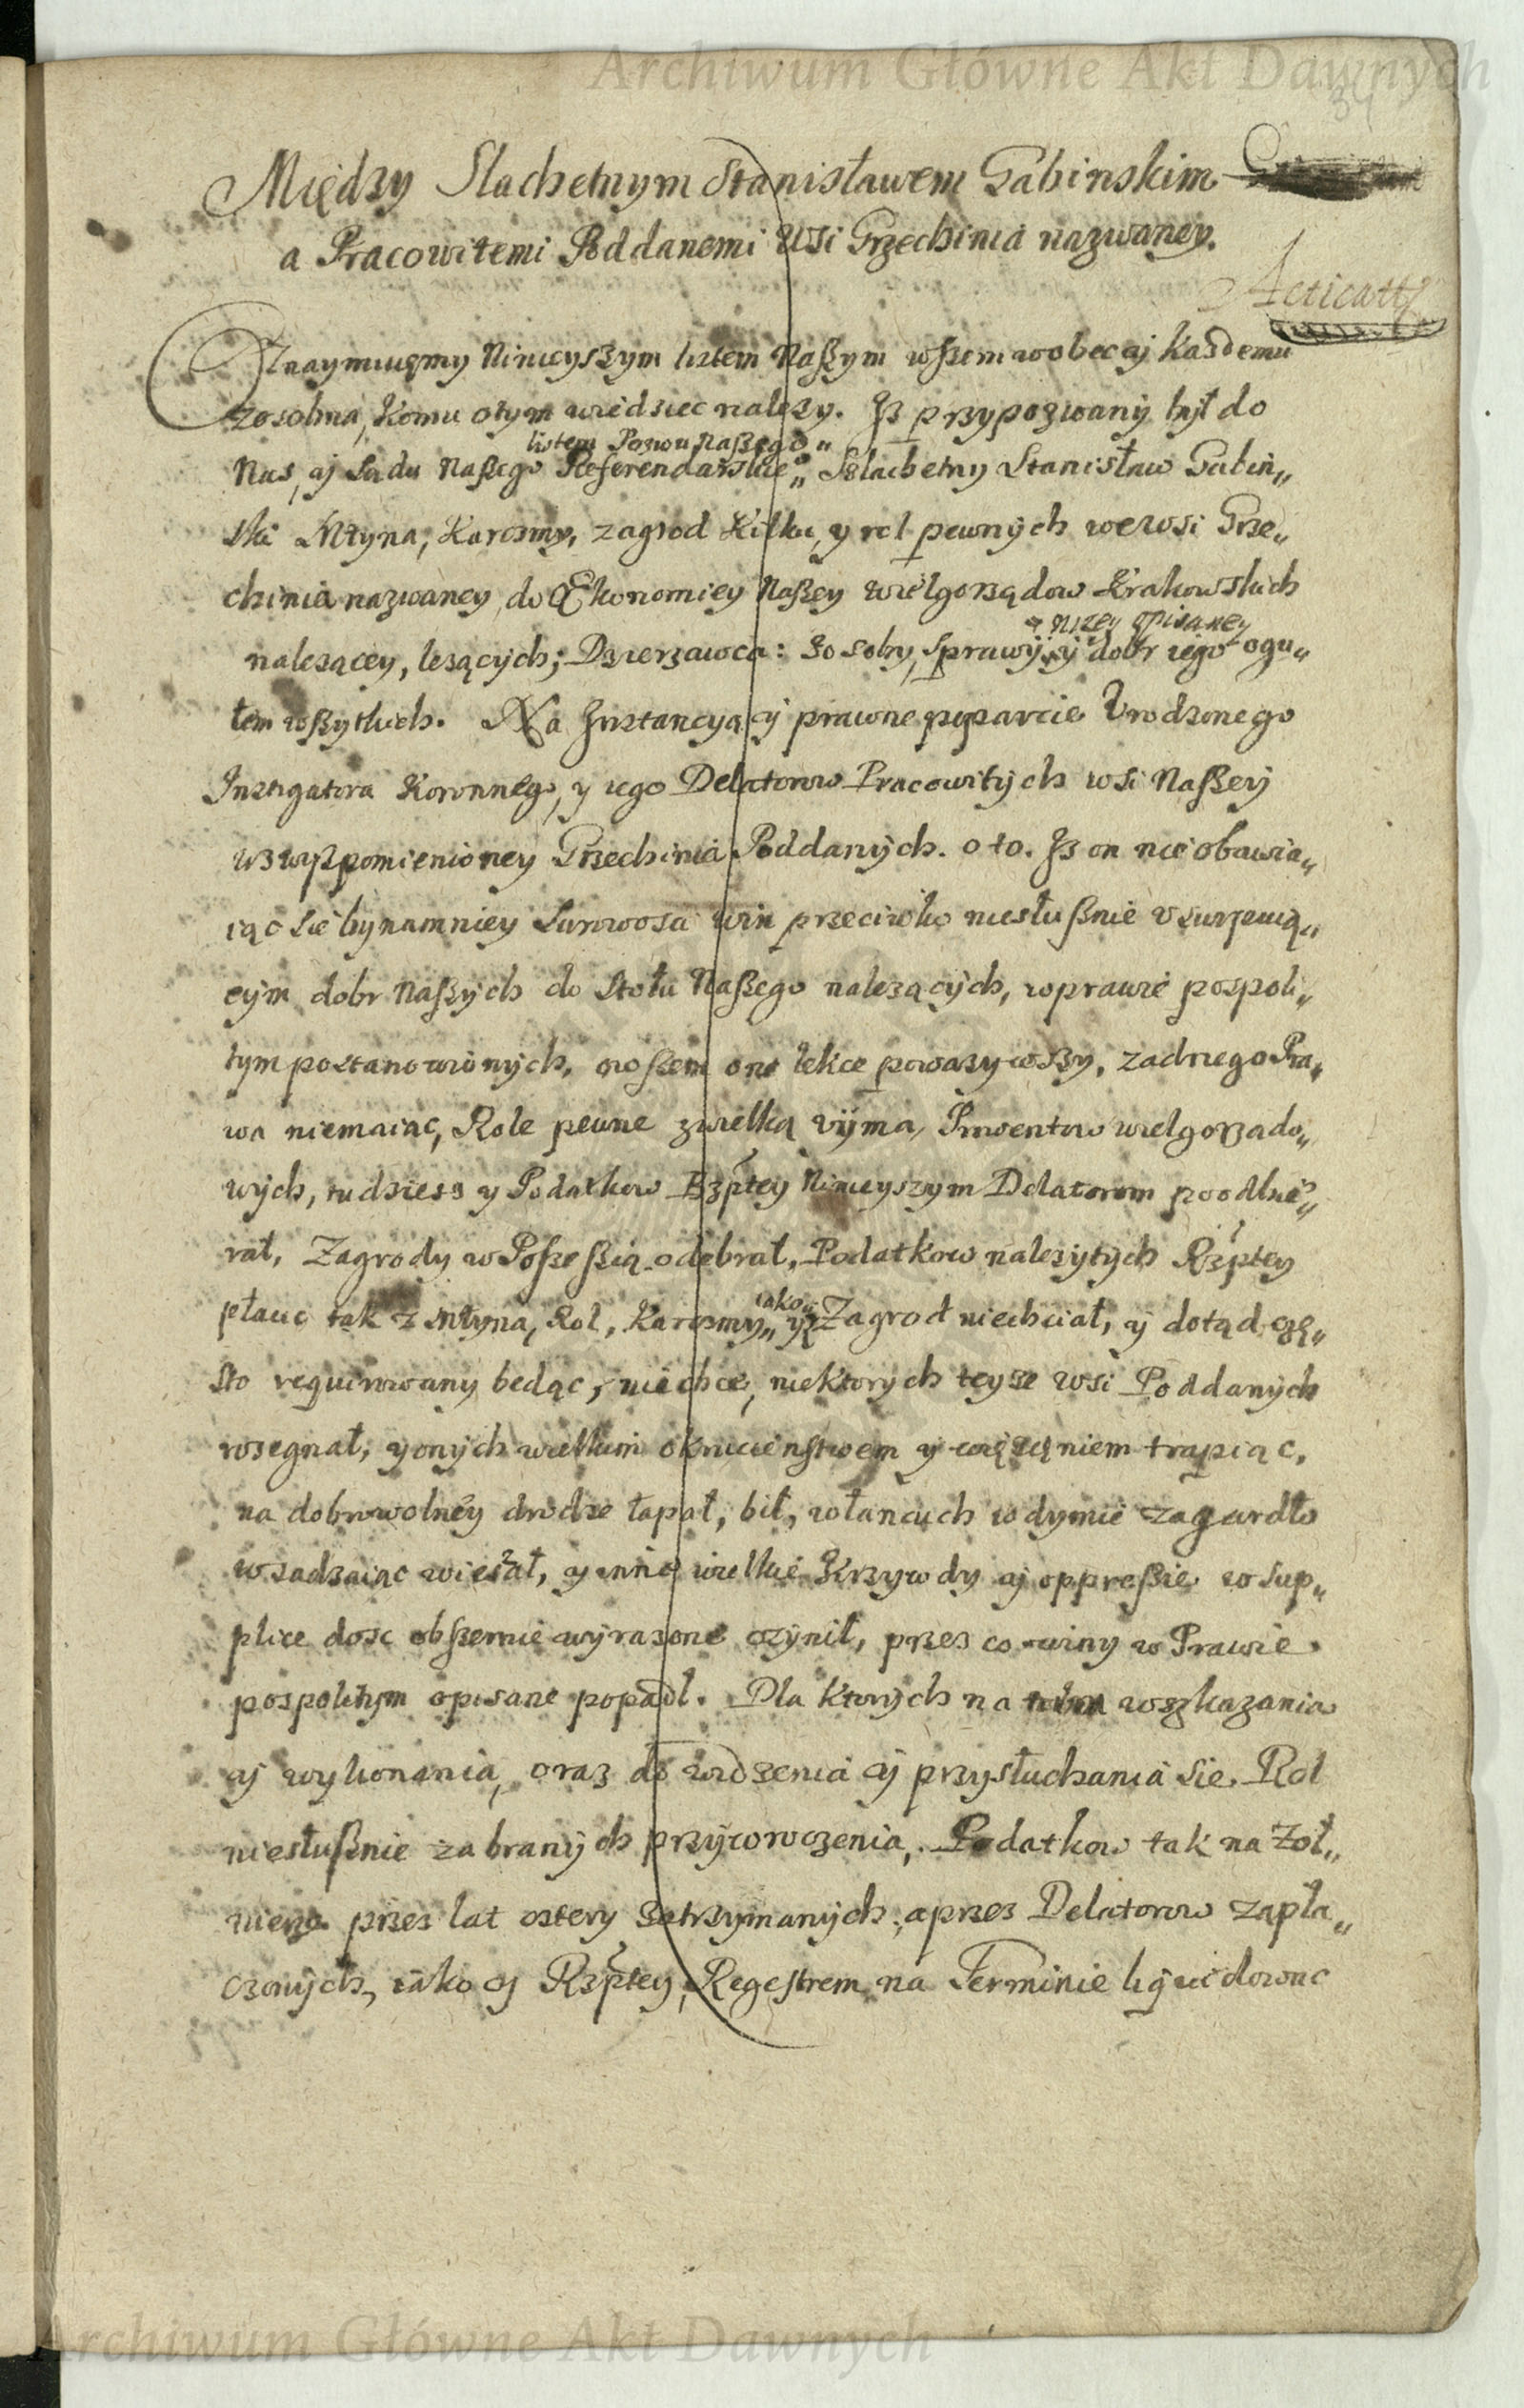 Archiwum Główne Akt Dawnych
34
Między Slachetnym Stanisławem Gabinskim
a Pracowitemi Poddanemi Wsi Grzechinia nazwaney.
Acticatt
Oznaymuięmy Ninieyszym listem Naszym wszem wobec aj każdemu
zosobna, komu otym wiedziec nalezy. Iz przypozwany był do
listem Pozwu Naszego
Nas, aj Sądu Naszego Referendarskie„ Szlachetny Stanisław Gabin„
ski Młyna, Karczmy, zagrod kilku, y rol pewnych wewsi Grze„
chinia nazwaney, do Ekonomiey Naszey wielgorządow Krakowskich
nizey opisaney
nalezącey, lezących; Dzierzawca: Zosoby, sprawy, y dobr iego ogu„
łem wszytkich. Na Instancyą y prawne poparcie Urodzonego
Instigatora Koronnego, y iego Delatorow Pracowitych wsi Naszey
wzwyszpomienioney Grzechinia Poddanych. o to. Iz on nie obawia„
iąc sie bynamniey Surowosci win przeciwko niesłusznie Usurpuią„
cym dobr Naszych do Stołu Naszego nalezących, wprawie pospoli„
tym postanowionych, owszem one lekce powazywszy, zadnego Pra„
wa niemaiąc, Role pewne zwielką uymą Prowentow wielgorządo„
wych, tudziesz y Podatkow Rzptey Ninieyszym Delatorom poodbie„
rał, Zagrody w Possessią odebrał, Podatkow nalezytych Rzptey
iako
płacic tak z Młyna, Rol, Karczmy„ y z Zagrod niechciał, y dotąd czę„
sto requirowany będąc, niechce, niektorych teyze wsi Poddanych
rozegnał, y onych wielkim okrucienstwem y więzięniem trapiąc,
na dobrowolney drodze łapał, bił, włancuch w dymie zagardło
wsadzaiąc wieszał, y inne wielkie krzywdy aj oppressie w Sup„
plice dosc obszernie wyrazone czynił, przez co winy w Prawie
pospolitym opisane popadł. Dla ktorych na wszkazania
aj wykonania, oraz do widzenia aj przysłuchania sie Rol
niesłusznie zabranych przywroczenia, Podatkow tak na Zoł„
nierza przez lat cztery zatrzymanych, aprzez Delatorow zapła„
czonych, iako y Rzptey, Regestrem na Terminie liquidowac
Archiwum Główne Akt Dawnych